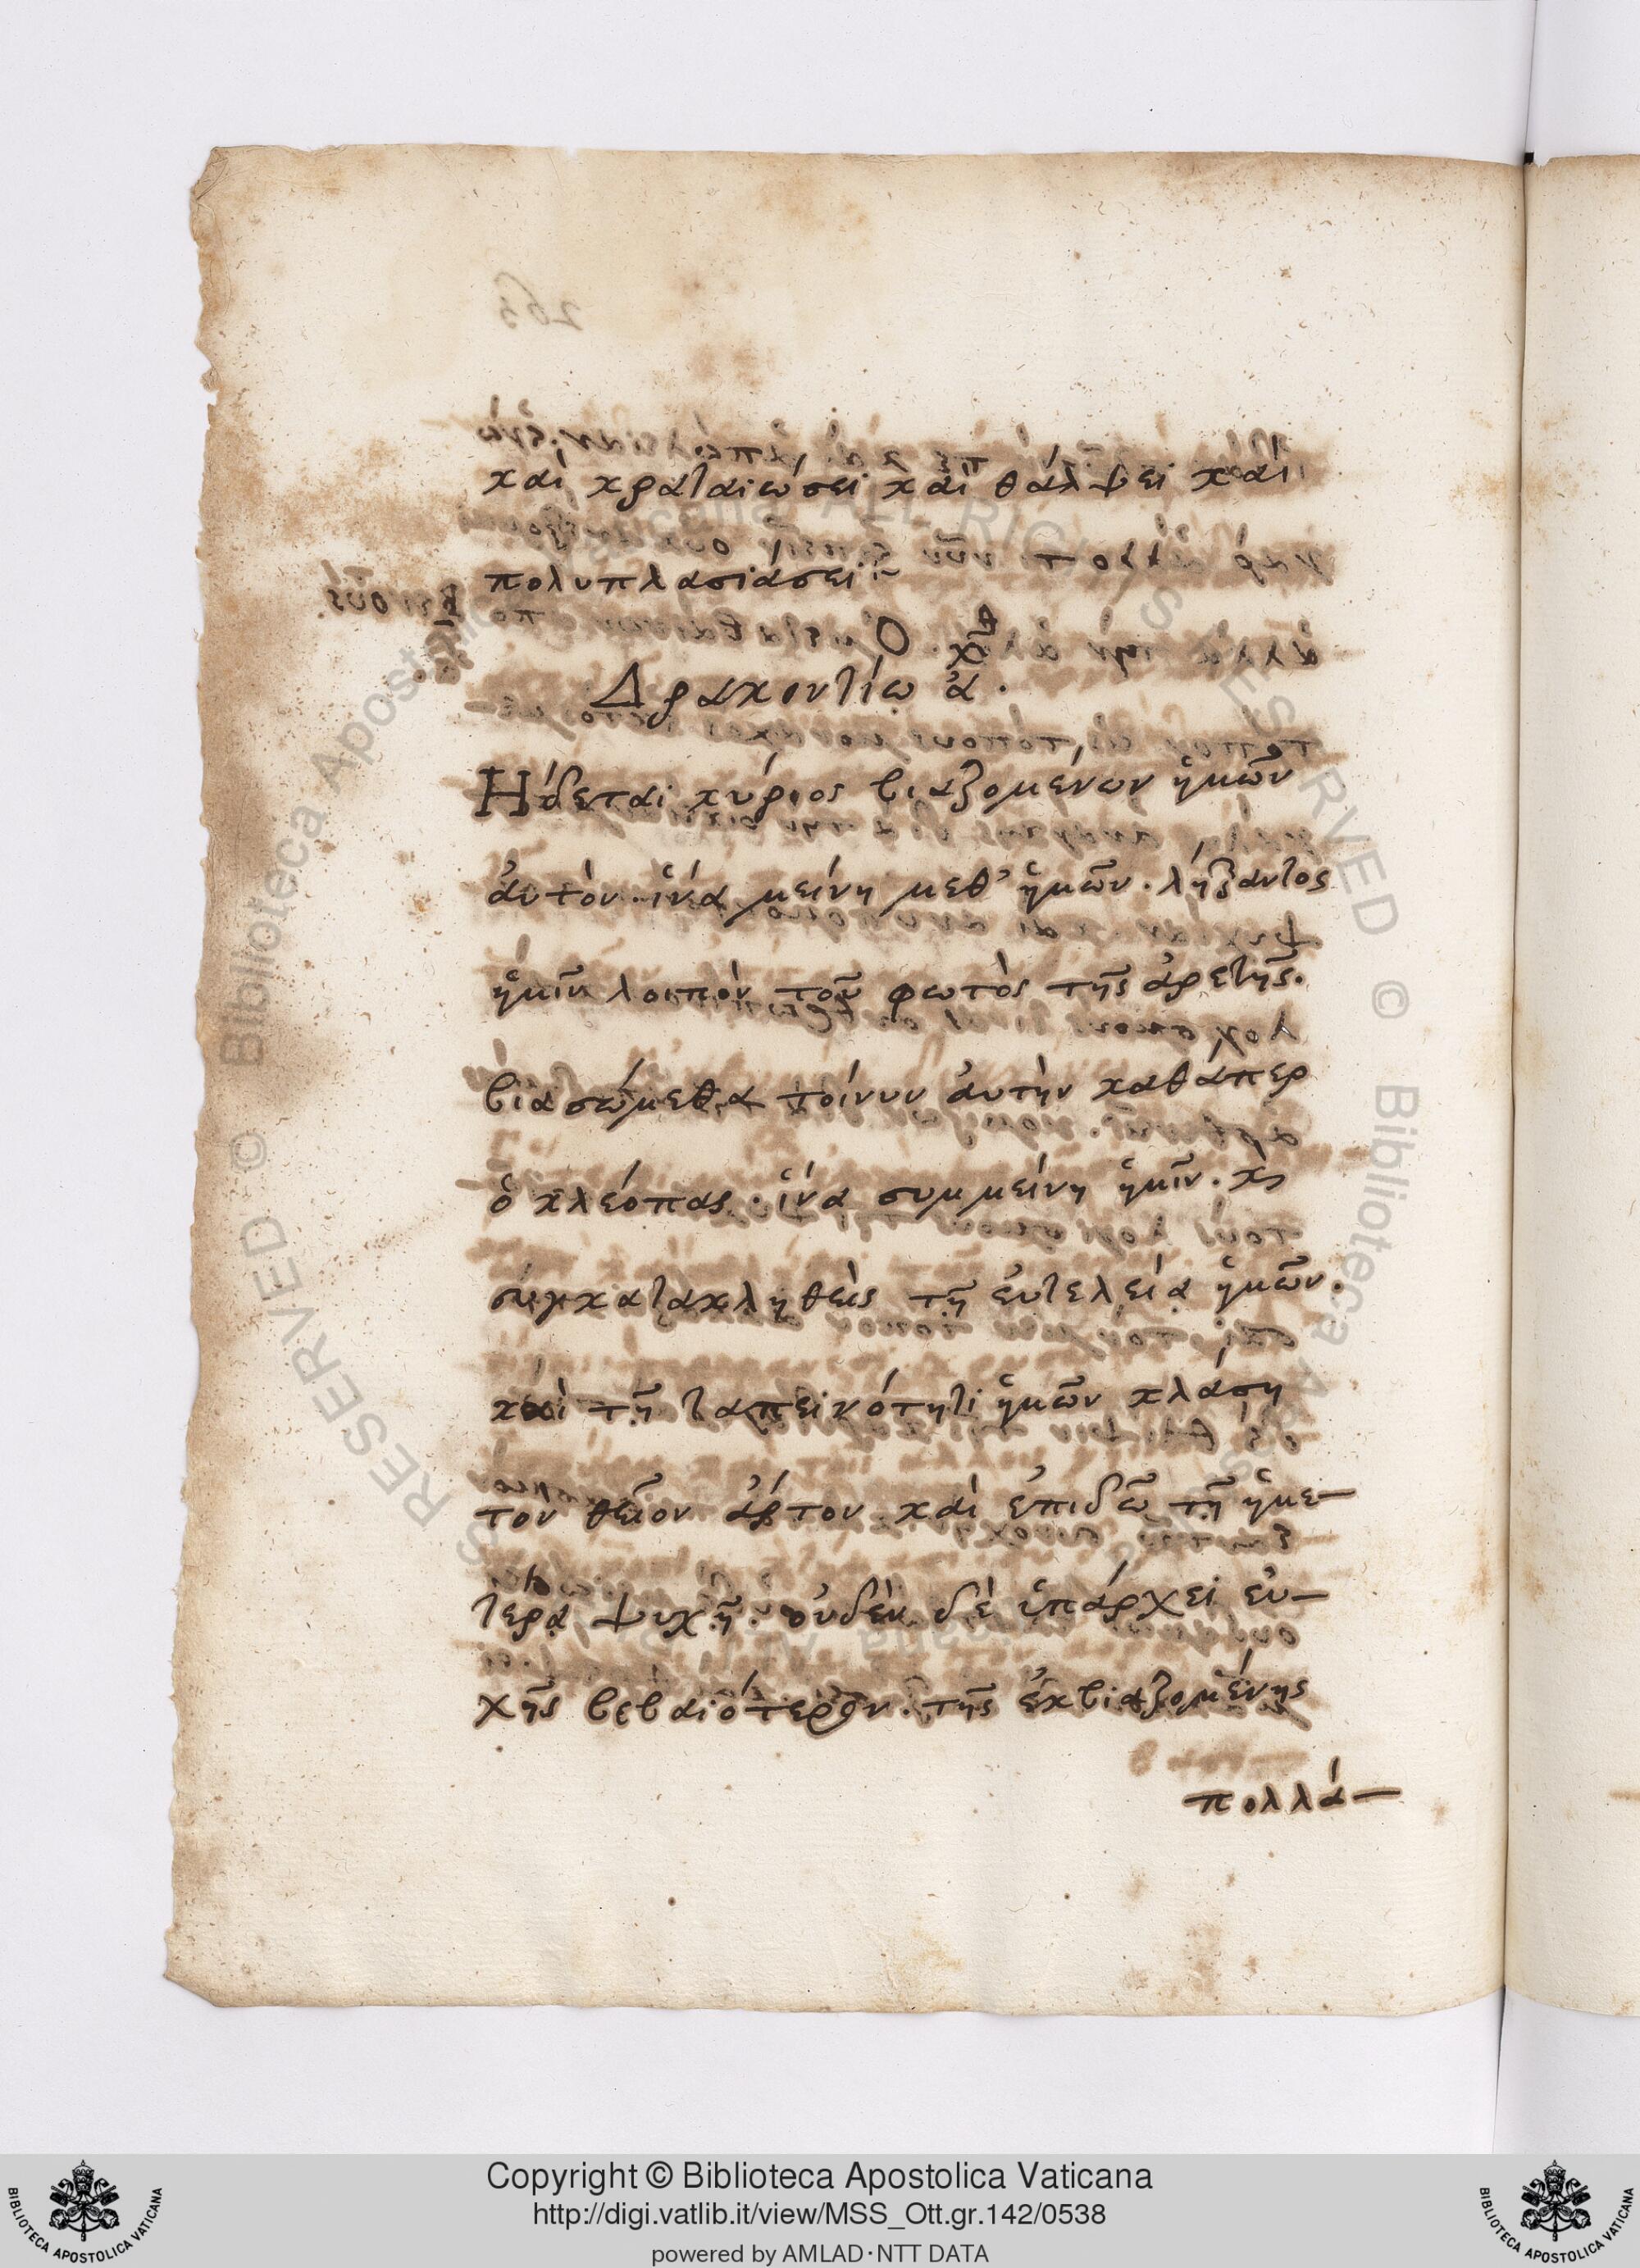 καὶ κραταιώσει καὶ θάλψει καὶ
πολυπλασιάσει:~
Δρακοντίω ἀ.
Ἥδεται κύριος βιαζομένων ἡμῶν
ἀυτὸν. ἵνα μείνη μεθ' ἡμῶν. λήξαντος
ἡμῖν λοιπὸν τοῦ φωτὸς τῆς ἀρετῆς.
βιασώμεθα τοίνυν ἀυτὴν καθάπερ
ὁ κλεόπας. ἵνα συμμείνη ἡμῖν. κς
συγκατακληθεὶς τῆ ἐυτελεία ἡμῶν.
καὶ τῆ ταπεινότητι ἡμῶν κλάση
τὸν θεῖον ἄρτον καὶ ἐπιδῶ τῆ ἡμε-
τέρα ψυχῆ. ὀυδὲν δὲ ὑπάρχει ἐυ-
χῆς βεβαιότερον. τῆς ἐκβιαζομένης
πολλά-
Copyright © Biblioteca Apostolica Vaticana
http://digi.vatlib.it/view/MSS_Ott.gr.142/0538
powered by AMLAD·NTT DATA
BIBLIOTECA APOSTOLICA VATICANA
BIBLIOTECA APOSTOLICA VATICANA